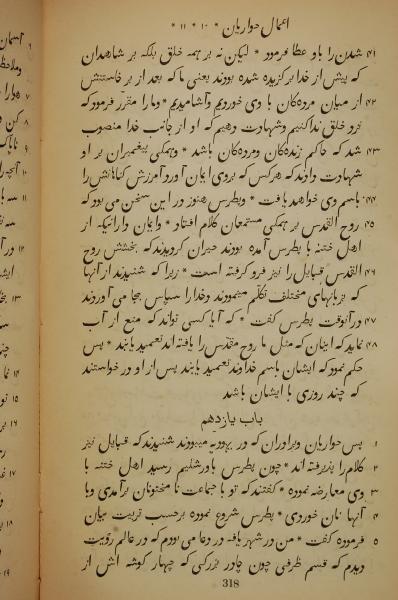 اعمال حواریان * ۱۰ * ۱۱ *
۴۱ شدن را باو عطا فرمود * لیکن نه بر همه خلق بلکه بر شاهدان
که پیش از خدا برگزیده شده بودند یعنی ما که بعد از بر خاستنش
۴۲ از میان مردهکان با وی خوردیم وآشامیدیم * وما را مقرّر فرمود که
خرو خلق ندا کنیم وشهادت دهیم که او از جانب خدا منصوب
۴۳ شد که حاکم زندهکان ومردهکان باشد * وهمکی پیغمبران بر او
شهادت دادند که هر کس که بروی ایمان آورد آمرزش کناهانش را
۴۴ باسم وی خواهد یافت * وپطرس هنوز در این سخن می بود که
۴۵ روح القدس بر همکی مستمعان کلام افتاد * وایمان دارانیکه از
اهل ختنه با پطرس آمده بودند حیران کردیدند که بخشش روح
۴۶ القدس قبایل را نیز فرو کرفته است * زیرا که شنیدند از آنها
که بزبانهای مختلف تکلّم مینمودند وخدا را سپاس بجا می آوردند
۴۷ در آنوقت پطرس کفت * که آیا کسی تواند که منع از آب
۴۸ نماید که اینان که مثل ما روح مقدّس را یافته اند تعمید یابند * پس
حکم نمود که ایشان باسم خداوند تعمید یابند پس از او در خواستند
که چند روزی با ایشان باشد
باب یازدهم
۱ پس حواریان وبرادران که در یهودیه میبودند شنیدند که قبایل نیز
۲ کلام را پذیرفته اند * چون پطرس باورشلیم رسید اهل ختنه با
۳ وی معارضه نموده * کفتند که تو با جماعت نا مختونان برآمدی وبا
۴ آنها نان خوردی * پطرس شروع نموده برحسب ترتیب بیان
۵ فرموده کفت * من در شهر یافه در دعا می بودم که در عالم رؤیت
دیدم که قسم ظرفی چون چادر بزرکی که چهار کوشه اش از
318